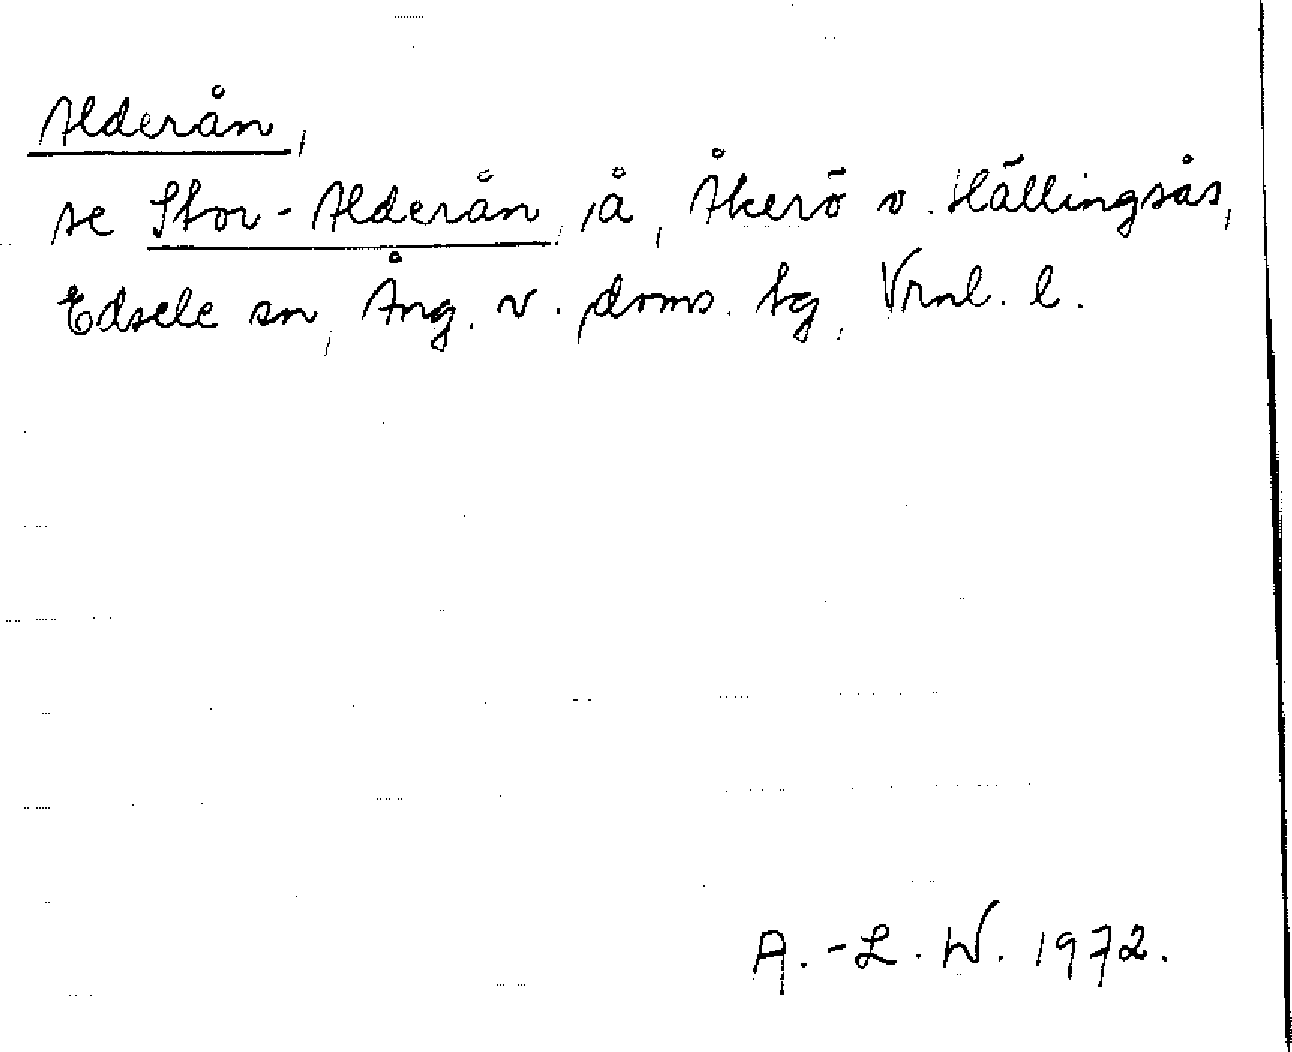 Alderån,
se Stor-Alderån, å, Åkerö o. Hällingsås,
Edsele sn, Ång. v. doms. tg, Vrnl. l.
A.-L. W. 1972.